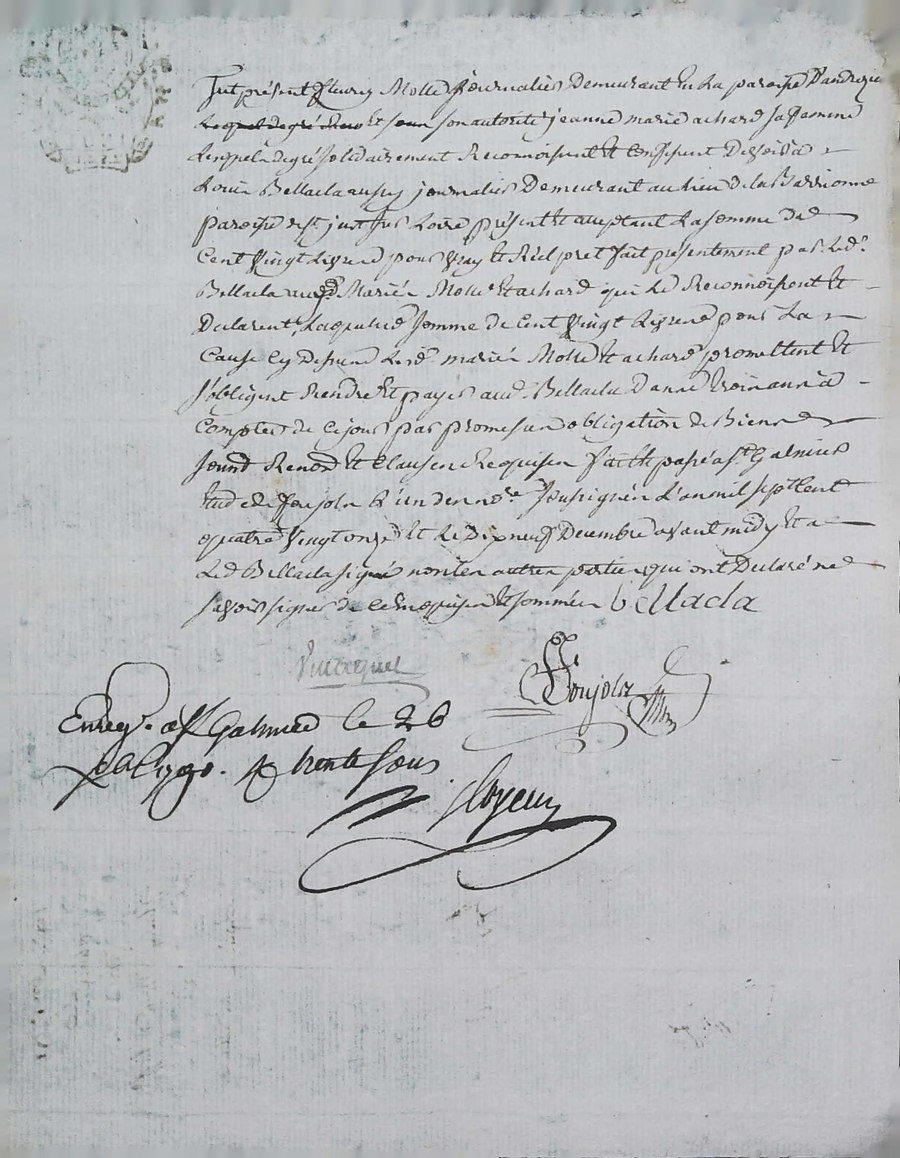 Fut présent fleury Molle Journalier Demeurant En La paroisse D'andrezieu
Lequel de gré et sous son autorité jeanne marie achard sa femme
Lesquels de gré solidairement Reconnoissent Et Confessent Devoir à
Louis Bellacla aussy journalier Demeurant au lieu de la
paroisse de st just sur Loire présent Et acceptant La somme de
Cent Vingt Livres pour vray Et Réel pret fait présentement par Led.
Bellacla aux d. Mariés Molle Et achard qui Le Reconnoissent Et
Declarent, Laquelle somme de Cent Vingt Livres pour La
Cause Cy Dessus Lesd. mariés Molle Et achard promettent Et
s'obligent Rendre Et payer aud. Bellacla Dans trois ans à
Compter de Ce jour par promesses obligation de Biens
Renond Et Clauses Requises fait Et passé à st Galmier
Etude de foujols L'un des no.re soussignés L'an mil sept Cent
quatre Vingt onze Et Le Dixneuf Decembre avant midy Et a
Led. Bellacla signé non les autres parties qui ont Déclaré ne
savoir signer de Ce Enquises Et sommées bellacla
foujols
Enreg.e à st Galmier le 26
xbre 1790. R trente sous